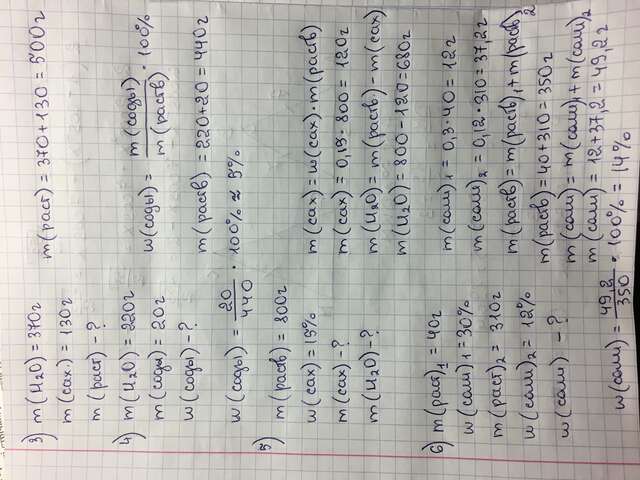 3) m(H₂O) = 370г
m(сах.) = 130г
m(раст) - ?
m(раст) = 370 + 130 = 500г
4) m(H₂O) = 220г
m(соды) = 20г
w(соды) - ?
w(соды) = m(соды) / m(раств) · 100%
m(раств) = 220 + 20 = 440г
w(соды) = 20/440 · 100% ≈ 5%
5) m(раств) = 800г
w(сах) = 15%
m(сах) - ?
m(H₂O) - ?
m(сах) = w(сах) · m(раств)
m(сах) = 0,15 · 800 = 120г
m(H₂O) = m(раств) - m(сах)
m(H₂O) = 800 - 120 = 680г
6) m(раст)₁ = 40г
w(соли)₁ = 30%
m(раст)₂ = 310г
w(соли)₂ = 12%
w(соли) - ?
m(соли)₁ = 0,3 · 40 = 12г
m(соли)₂ = 0,12 · 310 = 37,2г
m(раств) = m(раств)₁ + m(раств)₂
m(раств) = 40 + 310 = 350г
m(соли) = m(соли)₁ + m(соли)₂
m(соли) = 12 + 37,2 = 49,2г
w(соли) = 49,2/350 · 100% = 14%